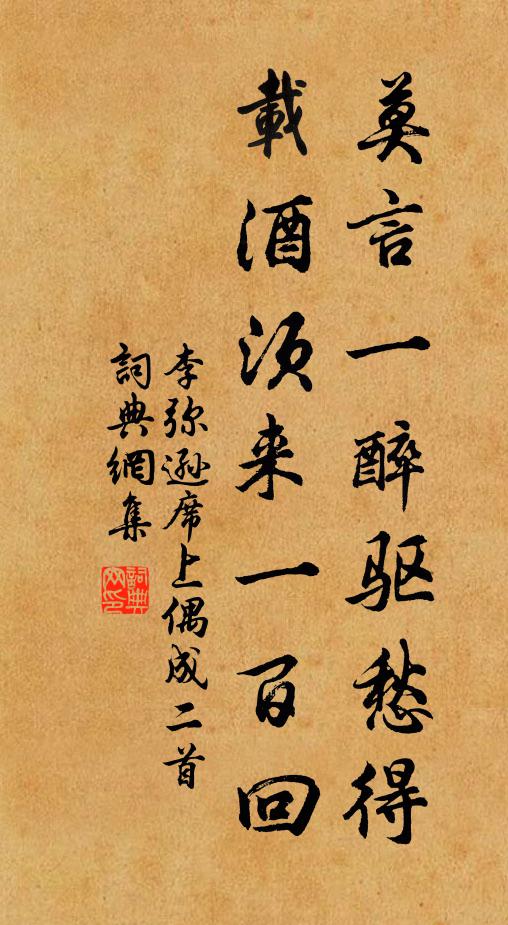 莫言一醉驱愁得
載酒须来一百回
李弥遜席上偶成二首
詞典網集
詞典
网印